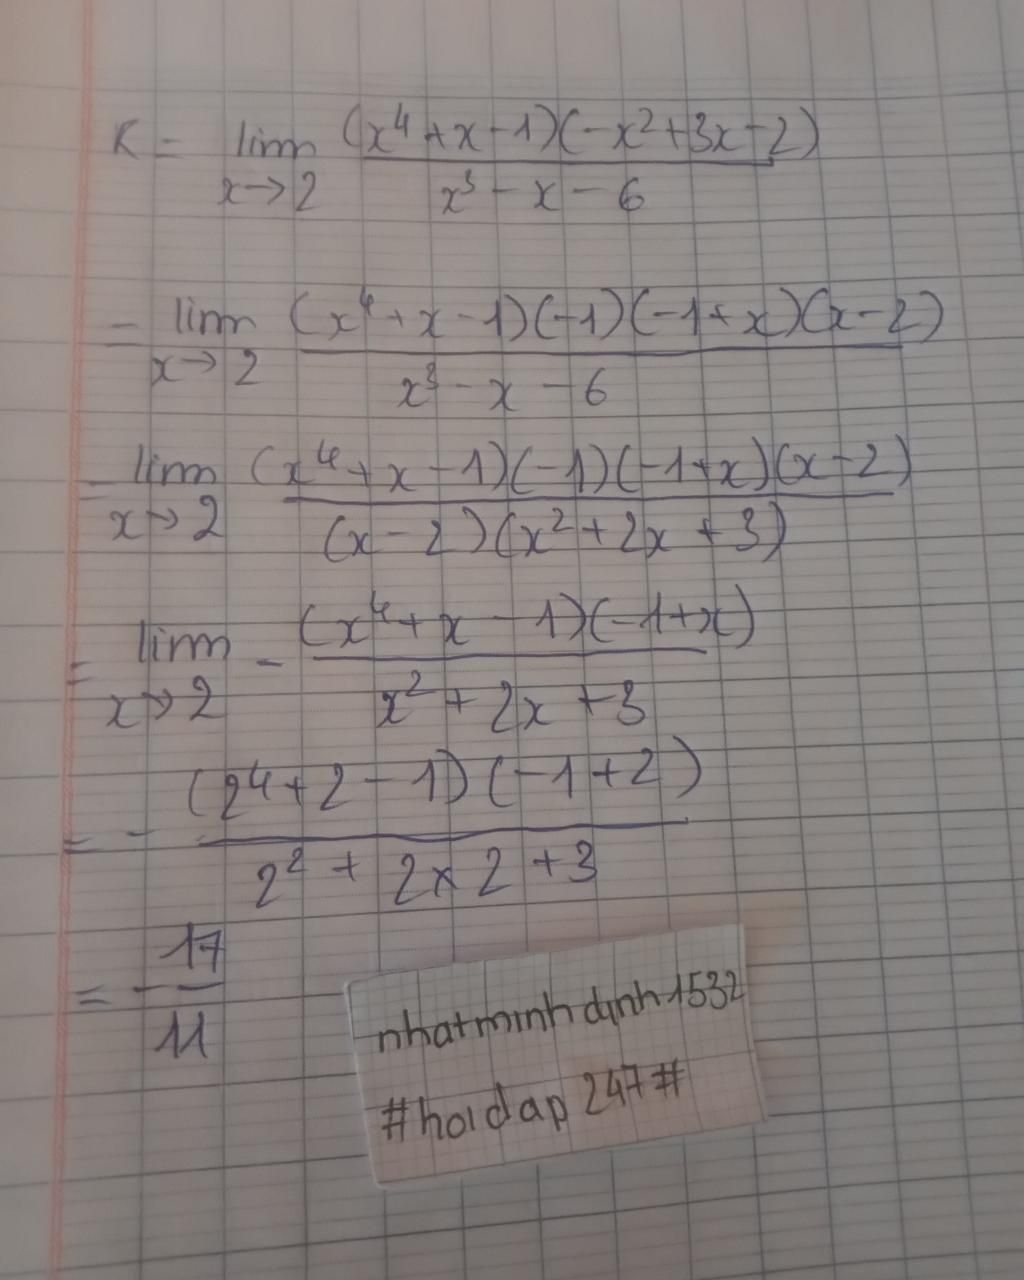 K = lim (x⁴ + x - 1)(-x² + 3x - 2)
x→2 x³ - x - 6
= lim (x⁴ + x - 1)(-1)(-1 + x)(x - 2)
x→2 x³ - x - 6
= lim (x⁴ + x - 1)(-1)(-1 + x)(x - 2)
x→2 (x - 2)(x² + 2x + 3)
= lim - (x⁴ + x - 1)(-1 + x)
x→2 x² + 2x + 3
= - (2⁴ + 2 - 1)(-1 + 2)
2² + 2 x 2 + 3
= - 17
11
nhatminhdinh1532
#hoidap247#